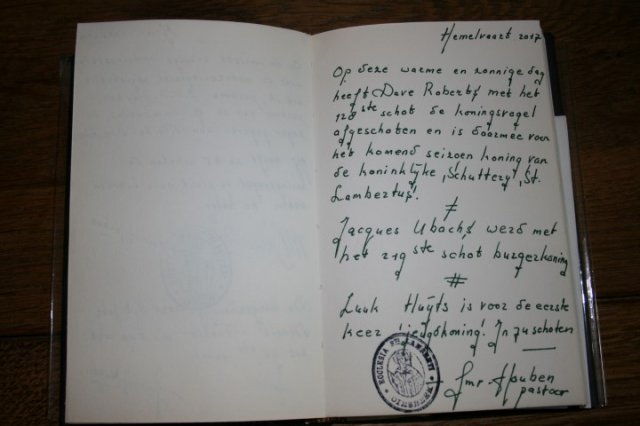 Hemelvaart 2017
Op deze warme en zonnige dag
heeft Dave Roberts met het
128ste schot de koningsvogel
afgeschoten en is daarmee voor
het komend seizoen koning van
de koninklijke 'Schuttery St.
Lambertus'.
Jacques Ubachs werd met
het 219ste schot burgerkoning
#
Luuk Huyts is voor de eerste
keer 'jeugdkoning'. In 74 schoten
Houben
pastoor
ECCLESIA LAMBERTI